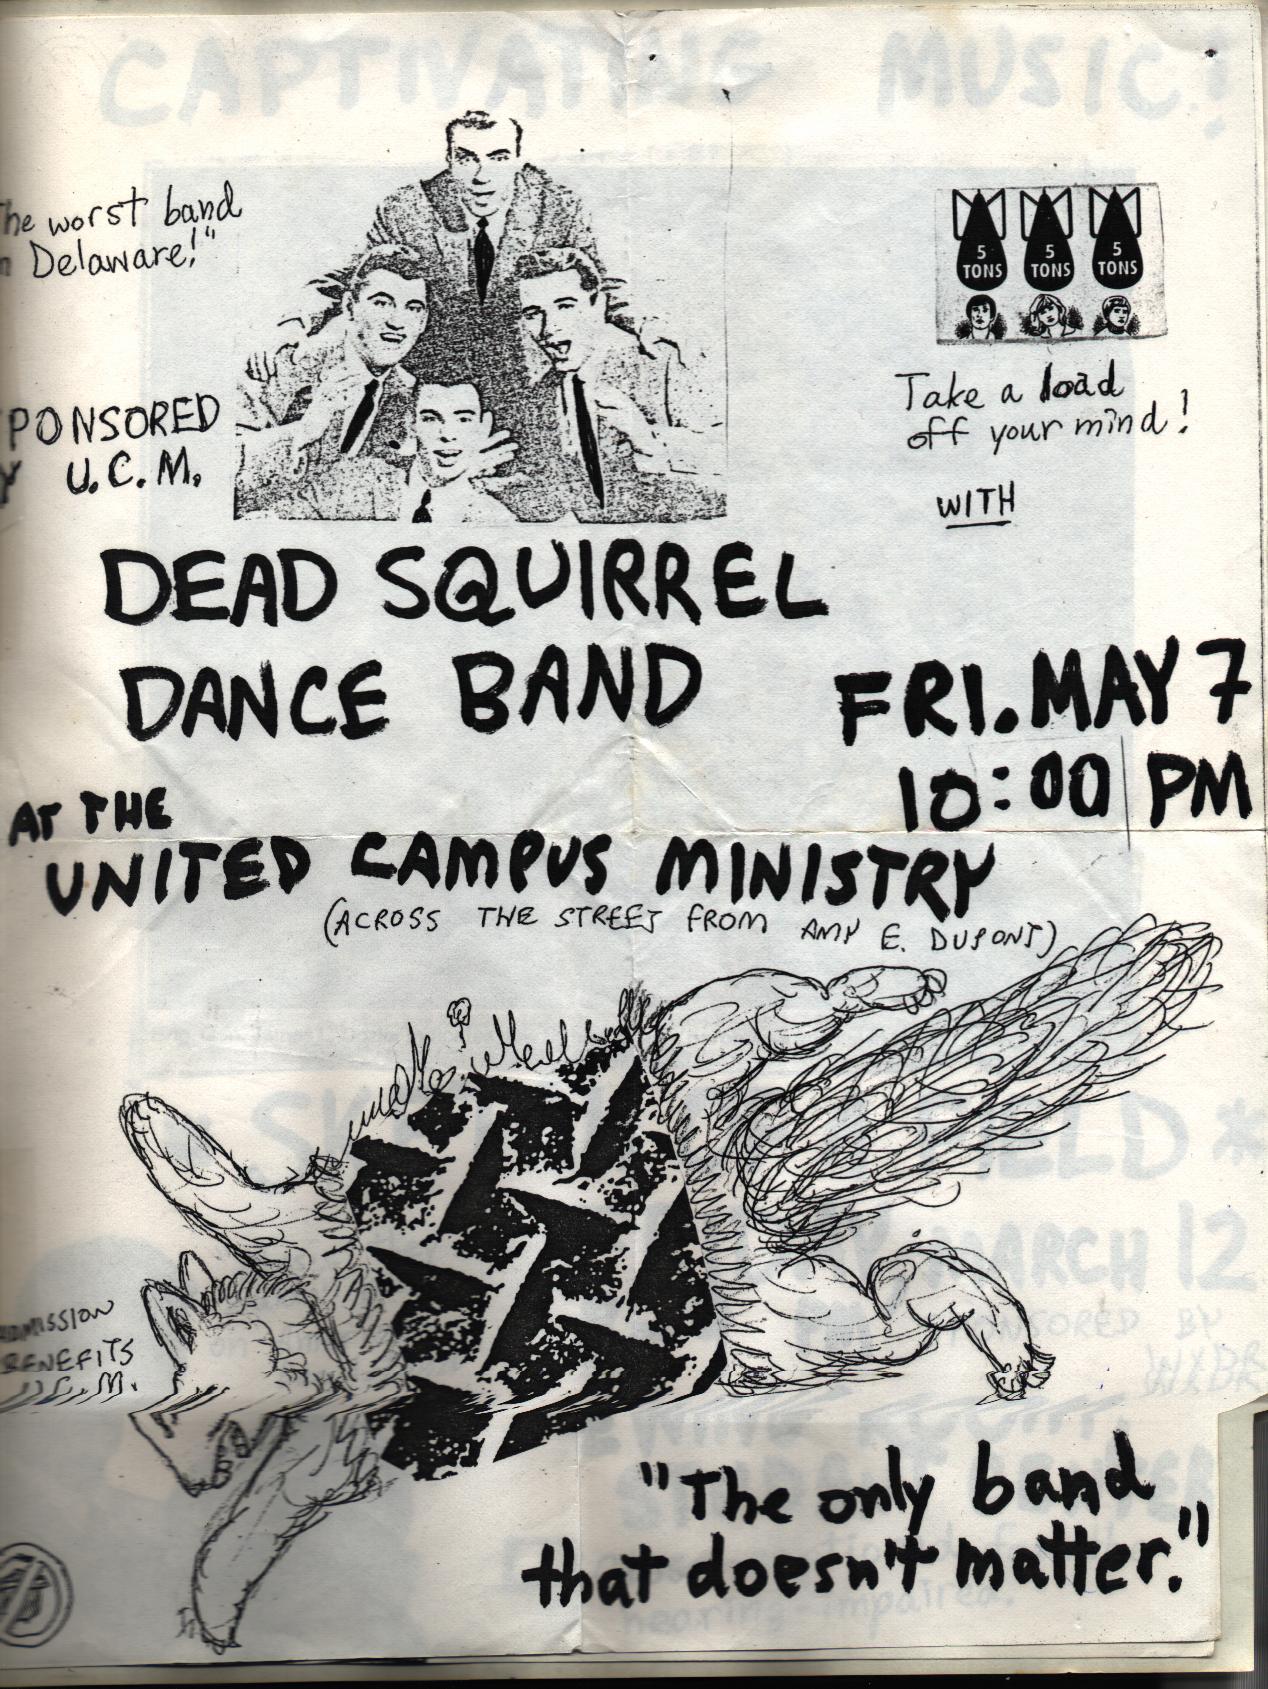 CAPTIVATING MUSIC!
he worst band
n Delaware!"
5 TONS
5 TONS
5 TONS
Take a load
off your mind!
WITH
PONSORED
Y U.C.M.
DEAD SQUIRREL
DANCE BAND
FRI. MAY 7
10:00 PM
AT THE
UNITED CAMPUS MINISTRY
(ACROSS THE STREET FROM AMY E. DUPONT)
MARCH 12
SPONSORED BY
WXDR
ADMISSION
BENEFITS
U.C.M.
"The only band
that doesn't matter."
hearing-impaired.